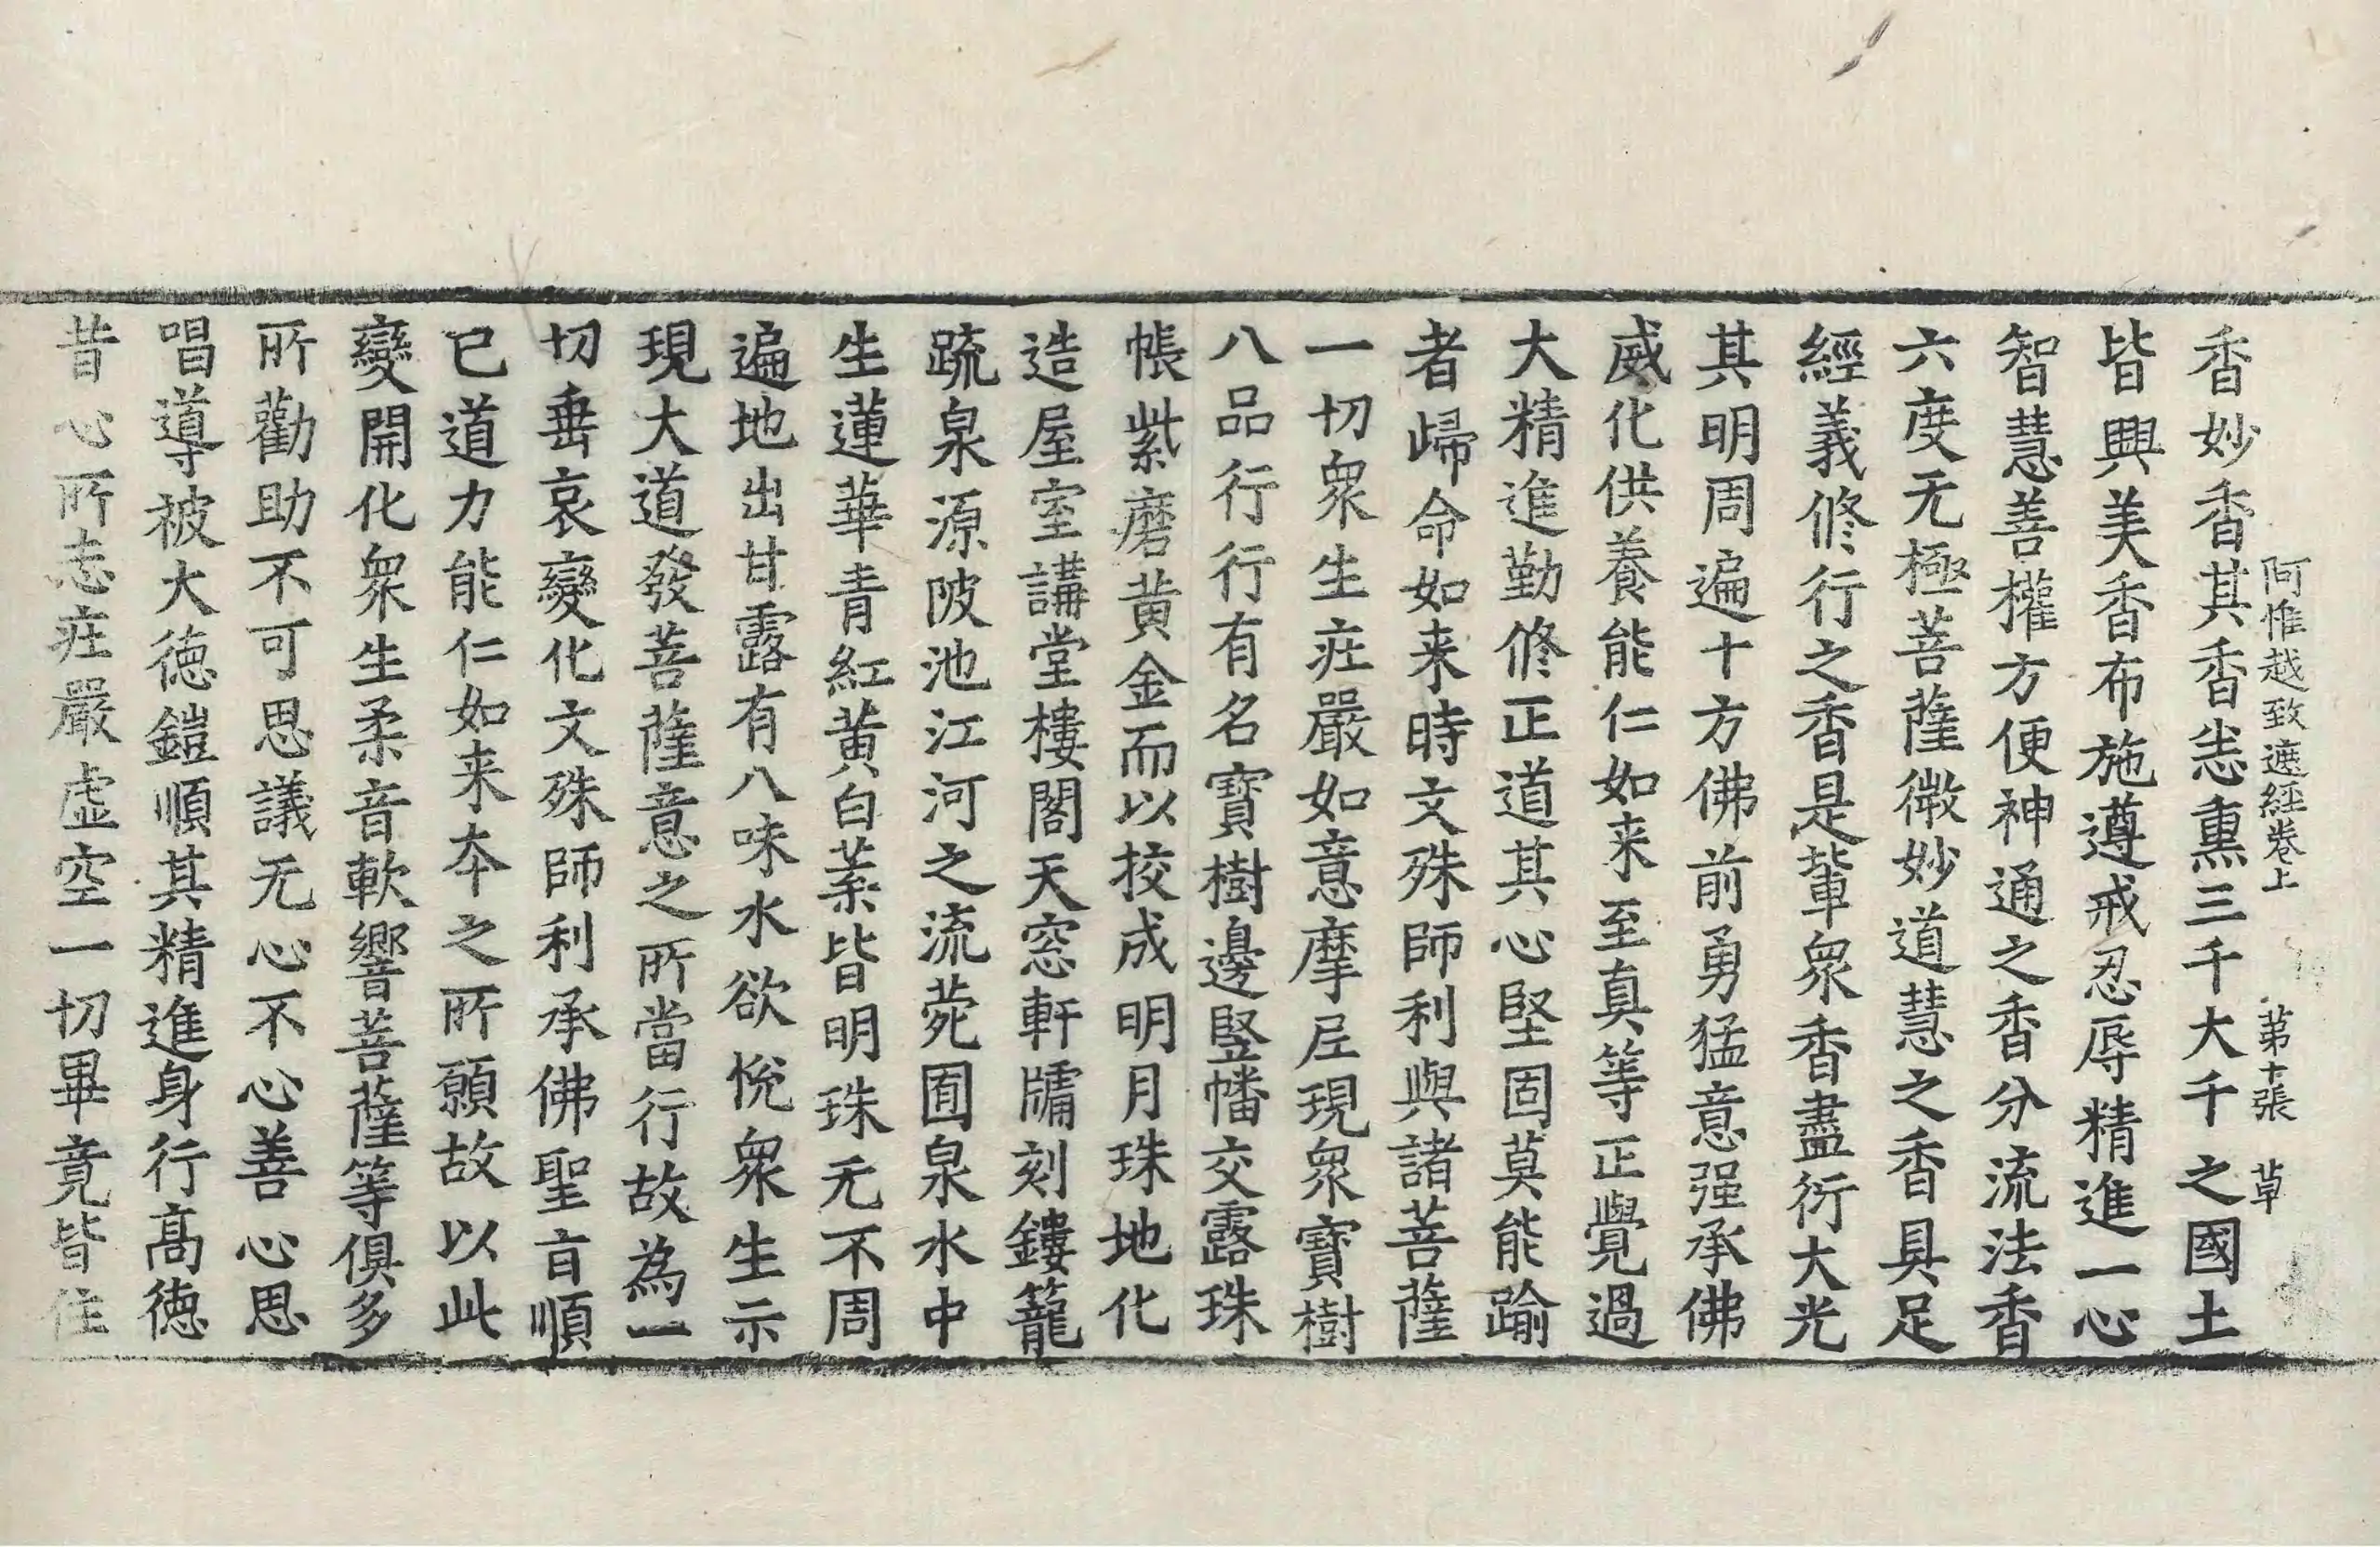 阿惟越致遮經卷上　第十張　草
香妙香其香恙熏三千大千之國土
皆興美香布施遵戒忍辱精進一心
智慧善權方便神通之香分流法香
六度无極菩薩微妙道慧之香具足
經義修行之香是輩衆香盡衍大光
其明周遍十方佛前勇猛意强承佛
威化供養能仁如来至真等正覺過
大精進勤修正道其心堅固莫能踰
者歸命如来時文殊師利與諸菩薩
一切衆生莊嚴如意摩尼現衆寶樹
八品行行有名寶樹邊竪幡交露珠
帳紫磨黄金而以挍成明月珠地化
造屋室講堂樓閣天窓軒牗刻鏤籠
疏泉源陂池江河之流菀囿泉水中
生蓮華青紅黄白葉皆明珠无不周
遍地出甘露有八味水欲悅衆生示
現大道發菩薩意之所當行故為一
切垂哀變化文殊師利承佛聖旨順
已道力能仁如来本之所願故以此
變開化衆生柔音軟響菩薩等俱多
所勸助不可思議无心不心善心思
唱導被大德鎧順其精進身行高德
昔心所志莊嚴虚空一切畢竟皆住